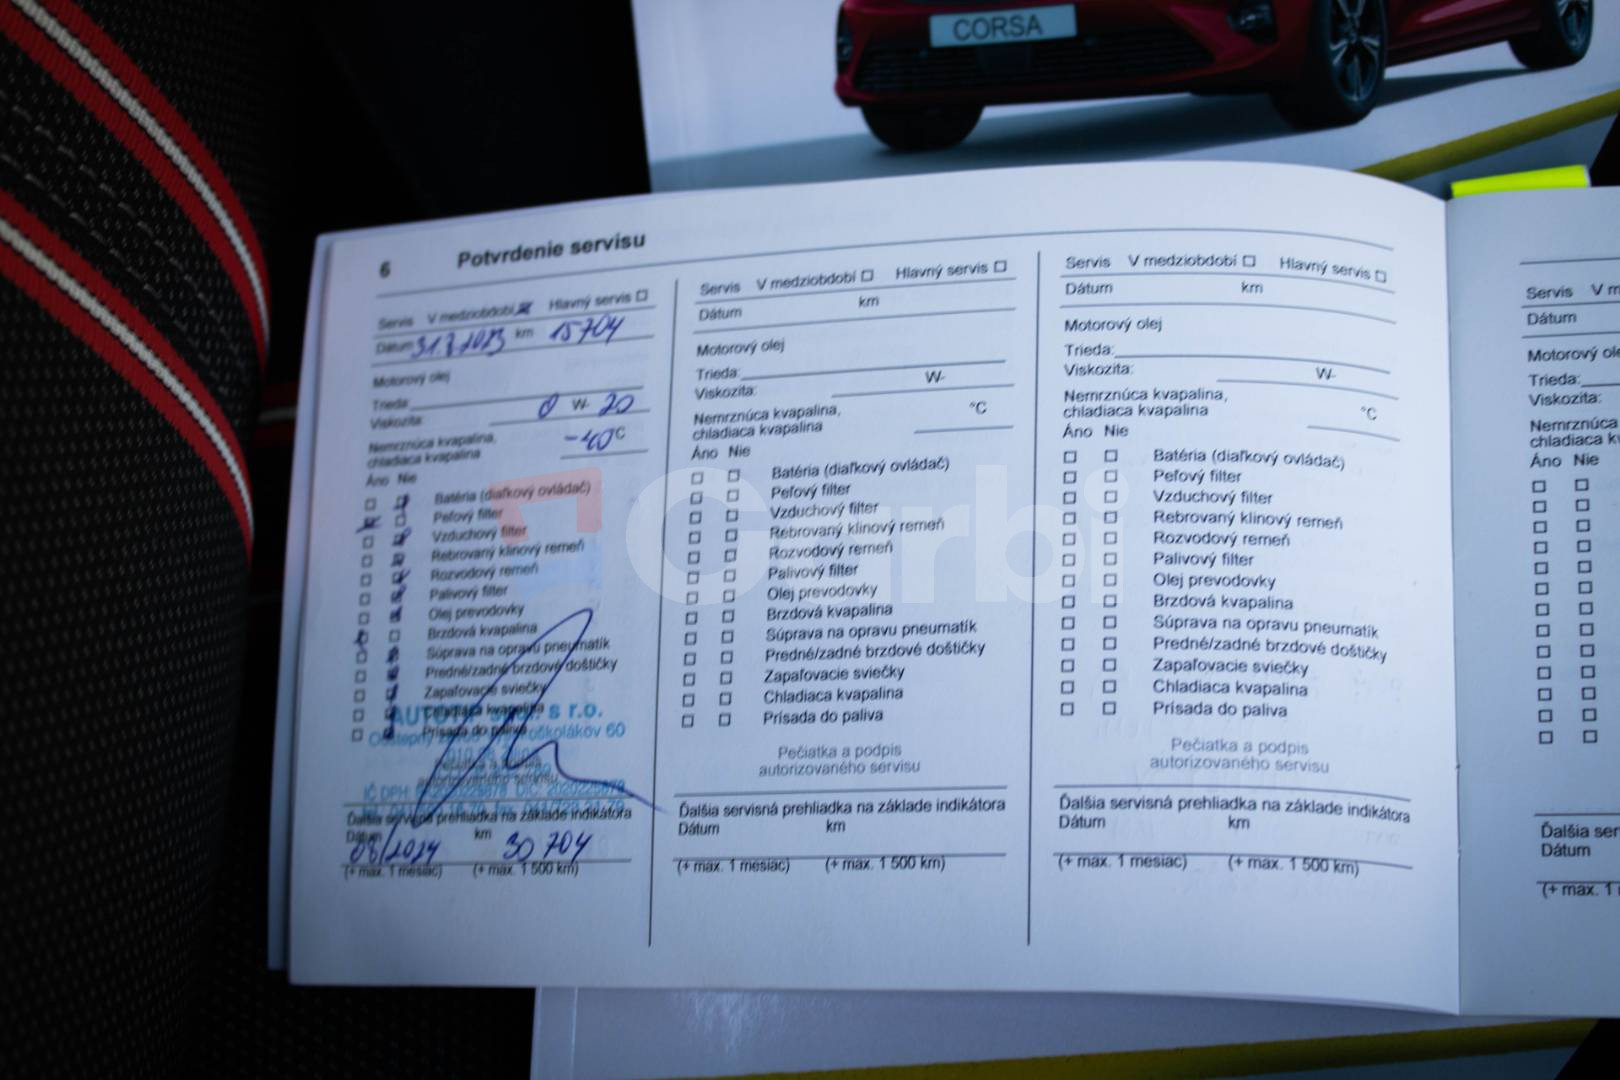 CORSA
6 Potvrdenie servisu
Servis V medziobdobí Hlavný servis
Dátum 31.7.2023 km 15704
Motorový olej
Trieda:
Viskozita: 0 W- 20
Nemrznúca kvapalina,
chladiaca kvapalina -40°C
Áno Nie
Batéria (diaľkový ovládač)
Peľový filter
Vzduchový filter
Rebrovaný klinový remeň
Rozvodový remeň
Palivový filter
Olej prevodovky
Brzdová kvapalina
Súprava na opravu pneumatík
Predné/zadné brzdové doštičky
Zapaľovacie sviečky
Chladiaca kvapalina
Prísada do paliva
s r.o.
60
Pečiatka a podpis
autorizovaného servisu
IČ DPH:
Ďalšia servisná prehliadka na základe indikátora
Dátum km
08/2024 30 704
(+ max. 1 mesiac) (+ max. 1 500 km)
Servis V medziobdobí Hlavný servis
Dátum km
Motorový olej
Trieda:
Viskozita: W-
Nemrznúca kvapalina,
chladiaca kvapalina °C
Áno Nie
Batéria (diaľkový ovládač)
Peľový filter
Vzduchový filter
Rebrovaný klinový remeň
Rozvodový remeň
Palivový filter
Olej prevodovky
Brzdová kvapalina
Súprava na opravu pneumatík
Predné/zadné brzdové doštičky
Zapaľovacie sviečky
Chladiaca kvapalina
Prísada do paliva
Pečiatka a podpis
autorizovaného servisu
Ďalšia servisná prehliadka na základe indikátora
Dátum km
(+ max. 1 mesiac) (+ max. 1 500 km)
Servis V medziobdobí Hlavný servis
Dátum km
Motorový olej
Trieda:
Viskozita: W-
Nemrznúca kvapalina,
chladiaca kvapalina °C
Áno Nie
Batéria (diaľkový ovládač)
Peľový filter
Vzduchový filter
Rebrovaný klinový remeň
Rozvodový remeň
Palivový filter
Olej prevodovky
Brzdová kvapalina
Súprava na opravu pneumatík
Predné/zadné brzdové doštičky
Zapaľovacie sviečky
Chladiaca kvapalina
Prísada do paliva
Pečiatka a podpis
autorizovaného servisu
Ďalšia servisná prehliadka na základe indikátora
Dátum km
(+ max. 1 mesiac) (+ max. 1 500 km)
Servis V m
Dátum
Motorový ole
Trieda:
Viskozita:
Nemrznúca
chladiaca k
Áno Nie
Ďalšia ser
Dátum
(+ max. 1
Garbi